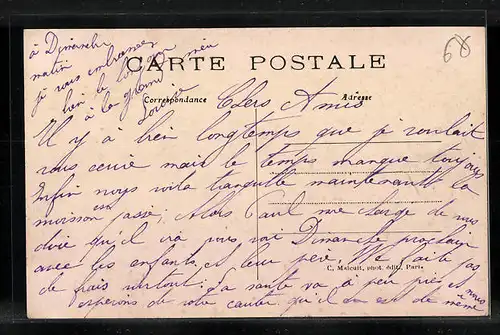 68
à Dimanche
matin
je vous embrasse
bien le bonjour
à la grand mère
Louise
CARTE POSTALE
Correspondance
Adresse
Chers Amis
Il y a bien longtemps que je voulait
vous ecrire mais le temps manque toujours
Enfin nous voila tranquille maintenant la
moisson est passé. Alors Paul me charge de vous
dire qu'il ira vous voir Dimanche prochain
avec les enfants et leur père. Ne faite pas
de frais surtout. La santé va à peu près nous
esperons de votre coté qu'il en est de même
C. Malcuit, phot. édit., Paris